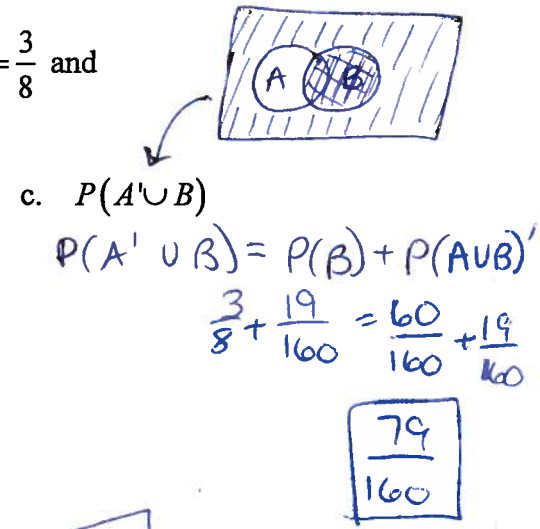 = 3/8 and
A B
c. P(A'∪B)
P(A' ∪ B) = P(B) + P(A∪B)'
3/8 + 19/160 = 60/160 + 19/160
79/160